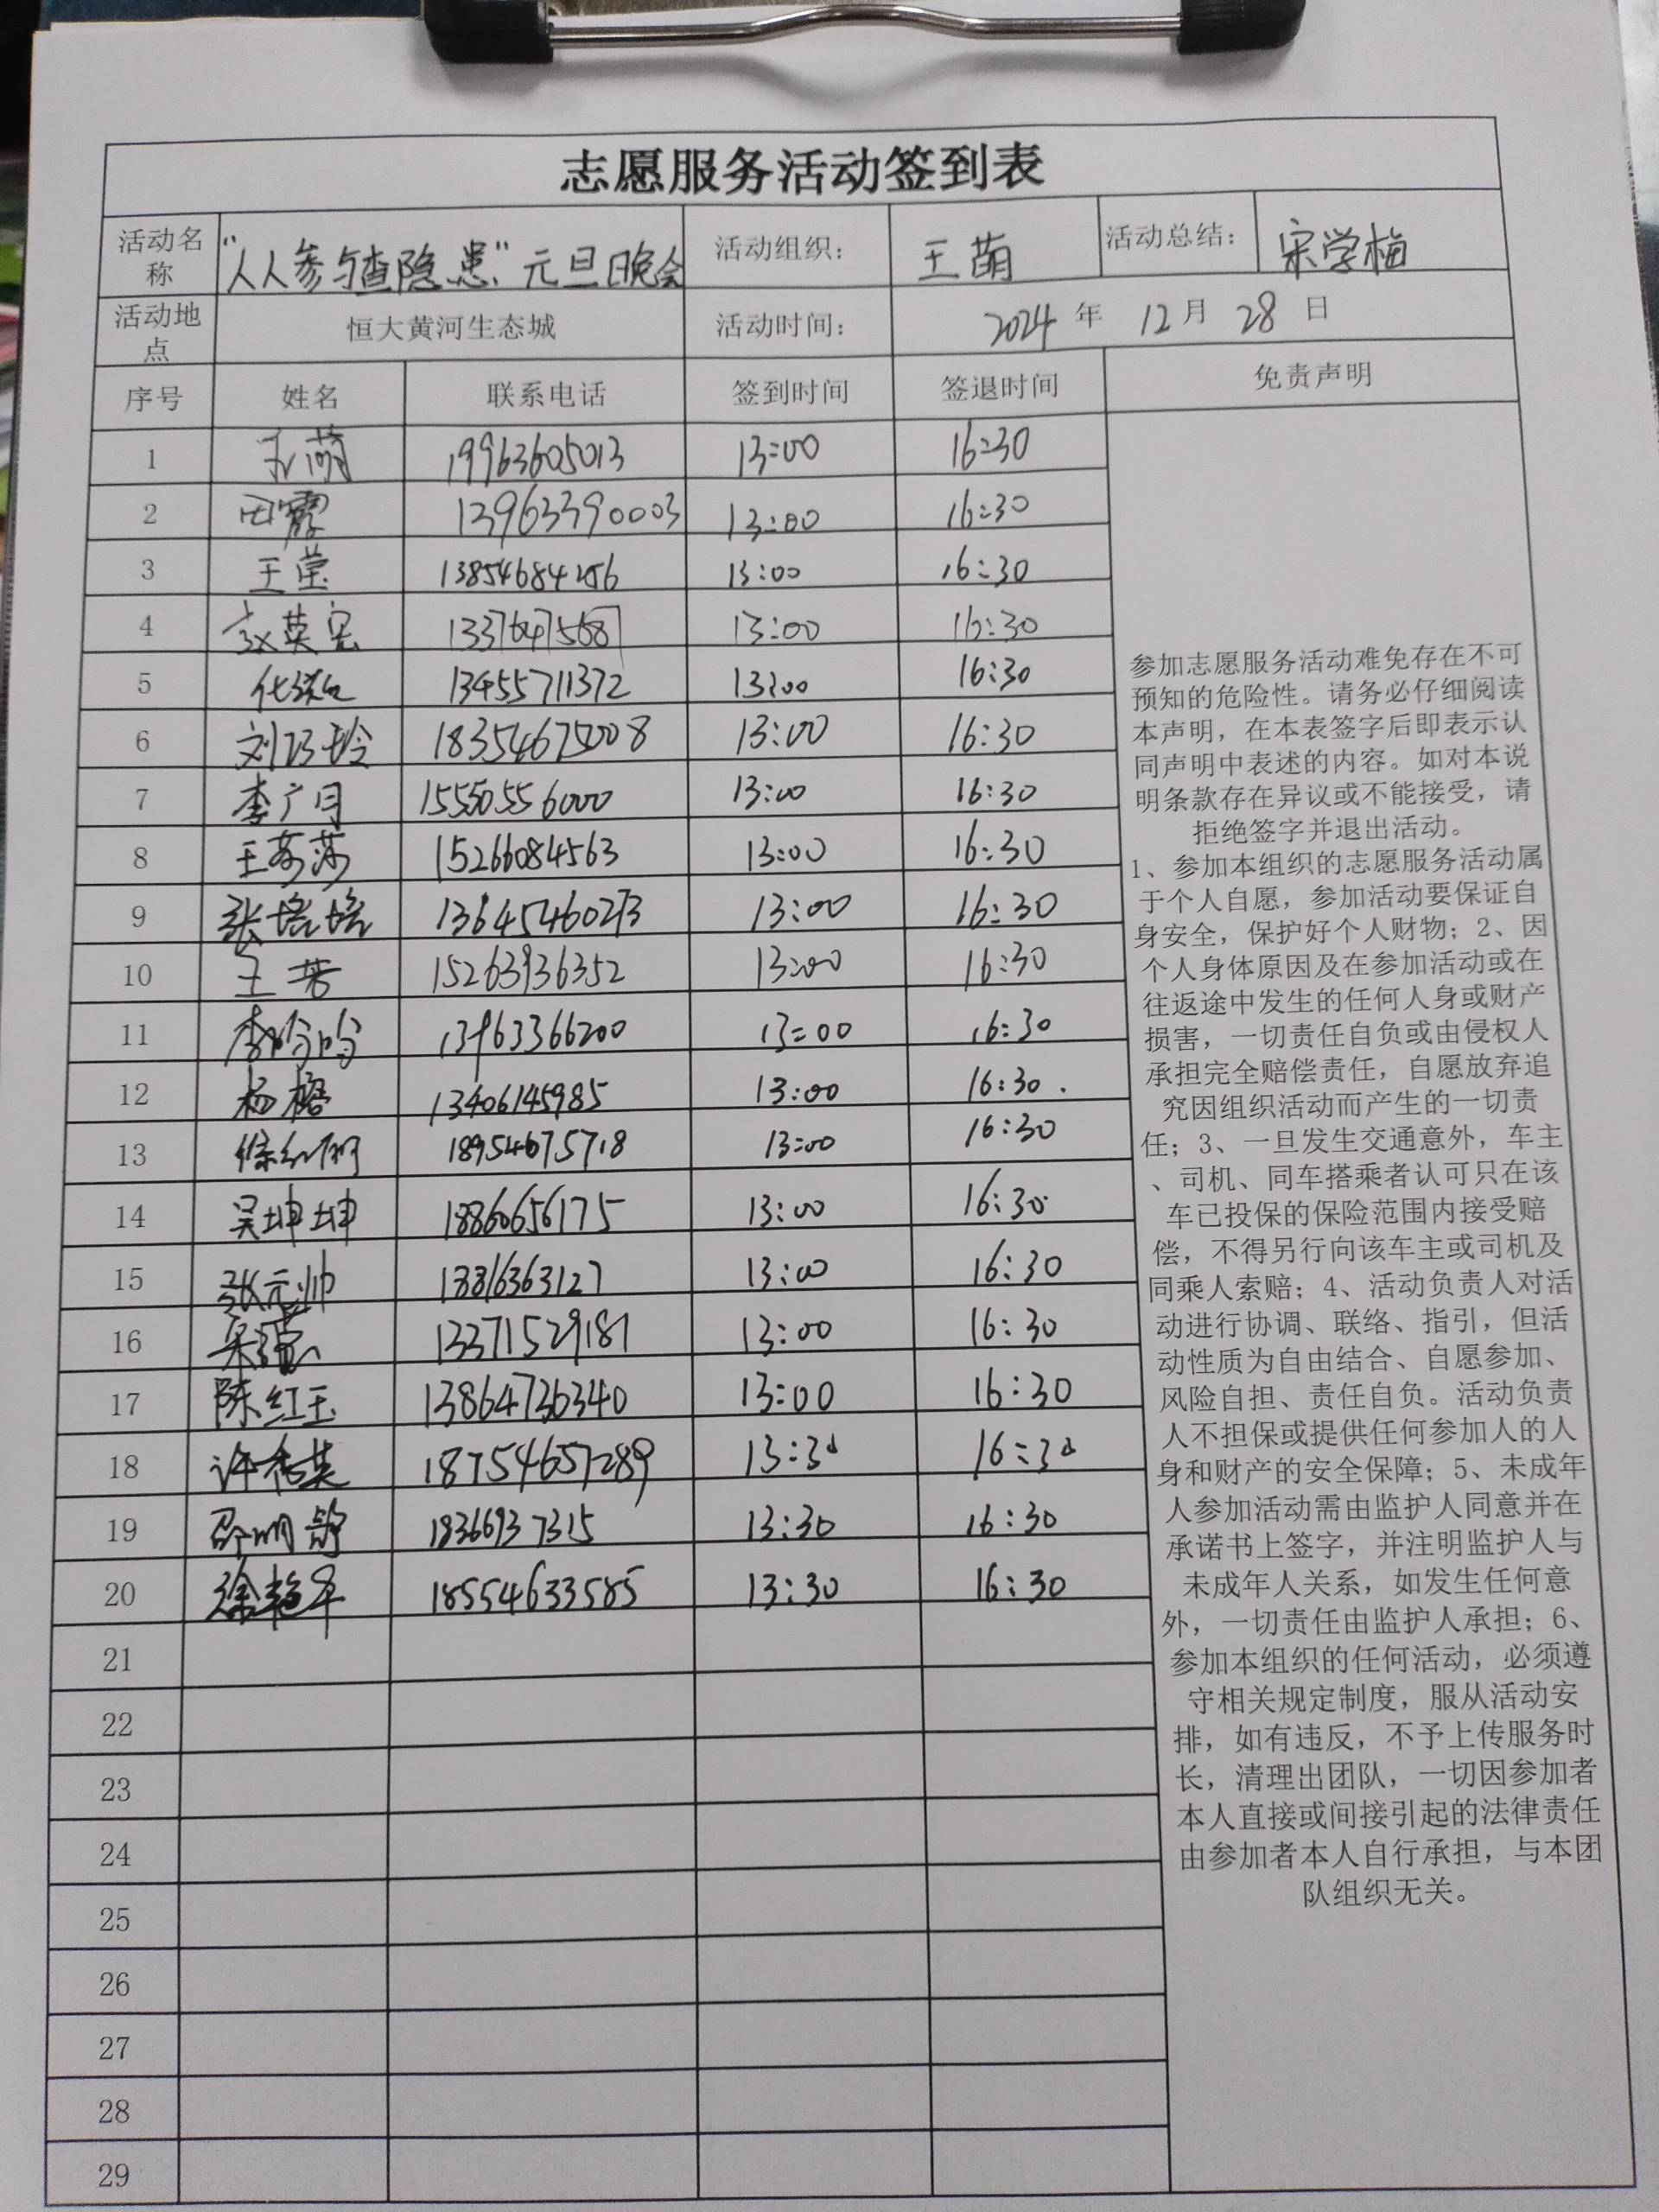 志愿服务活动签到表
活动名称 “人人参与查隐患”元旦晚会 活动组织： 王萌 活动总结： 宋学梅
活动地点 恒大黄河生态城 活动时间： 2024 年 12 月 28 日
序号 姓名 联系电话 签到时间 签退时间 免责声明
1 王萌 19963605013 13:00 16:30
2 田霞 13963390003 13:00 16:30
3 王莹 13854684256 13:00 16:30
4 赵英 13:00 16:30
5 13455711372 13:00 16:30
6 刘巧玲 18354675008 13:00 16:30
7 李广月 15550556000 13:00 16:30
8 王莎莎 15266084563 13:00 16:30
9 张培培 13645460273 13:00 16:30
10 王芳 15263936352 13:00 16:30
11 李 13963366200 13:00 16:30
12 杨榕 13406145985 13:00 16:30
13 徐红 18954675718 13:00 16:30
14 吴坤坤 18860656175 13:00 16:30
15 张元帅 13:00 16:30
16 13371529181 13:00 16:30
17 陈红玉 13864736340 13:00 16:30
18 许秀英 18754657289 13:30 16:30
19 邵明 13:30 16:30
20 徐艳军 18554633585 13:30 16:30
21
22
23
24
25
26
27
28
29
参加志愿服务活动难免存在不可
预知的危险性。请务必仔细阅读
本声明，在本表签字后即表示认
同声明中表述的内容。如对本说
明条款存在异议或不能接受，请
拒绝签字并退出活动。
1、参加本组织的志愿服务活动属
于个人自愿，参加活动要保证自
身安全，保护好个人财物；2、因
个人身体原因及在参加活动或在
往返途中发生的任何人身或财产
损害，一切责任自负或由侵权人
承担完全赔偿责任，自愿放弃追
究因组织活动而产生的一切责
任；3、一旦发生交通意外，车主
、司机、同车搭乘者认可只在该
车已投保的保险范围内接受赔
偿，不得另行向该车主或司机及
同乘人索赔；4、活动负责人对活
动进行协调、联络、指引，但活
动性质为自由结合、自愿参加、
风险自担、责任自负。活动负责
人不担保或提供任何参加人的人
身和财产的安全保障；5、未成年
人参加活动需由监护人同意并在
承诺书上签字，并注明监护人与
未成年人关系，如发生任何意
外，一切责任由监护人承担；6、
参加本组织的任何活动，必须遵
守相关规定制度，服从活动安
排，如有违反，不予上传服务时
长，清理出团队，一切因参加者
本人直接或间接引起的法律责任
由参加者本人自行承担，与本团
队组织无关。